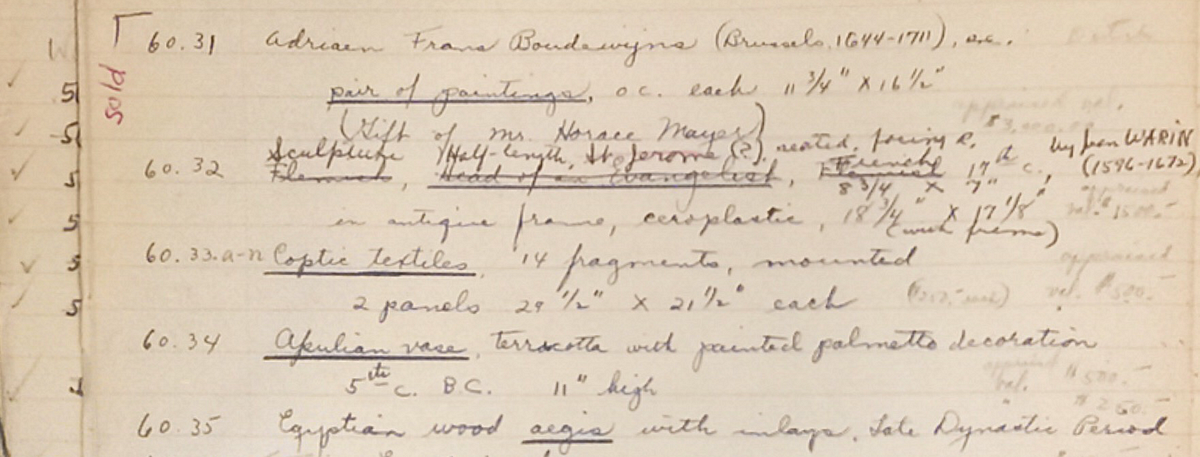 sold
60.31 Adriaen Frans Boudewijns (Brussels, 1644-1711),
pair of paintings, o.c. each 11 3/4" X 16 1/2"
appraised val.
(Gift of Mr. Horace Mayer)
$3,000.00
60.32 Sculpture Half-length, St. Jerome (?), seated, facing R. by Jean WARIN
Flemish, Head of an Evangelist, Flemish French 17th c., (1596-1672)
8 3/4 X 7"
appraised
in antique frame, ceroplastic, 18 3/4" X 17 1/8" val. $1500.-
(with frame)
60.33.a-n Coptic textiles, 14 fragments, mounted appraised
2 panels 29 1/2" X 21 1/2" each val. $500.-
60.34 Apulian vase, terracotta with painted palmetto decoration
appraised
5th c. B.C. 11" high val. $500.-
$250.-
60.35 Egyptian wood aegis with inlays, Late Dynastic Period